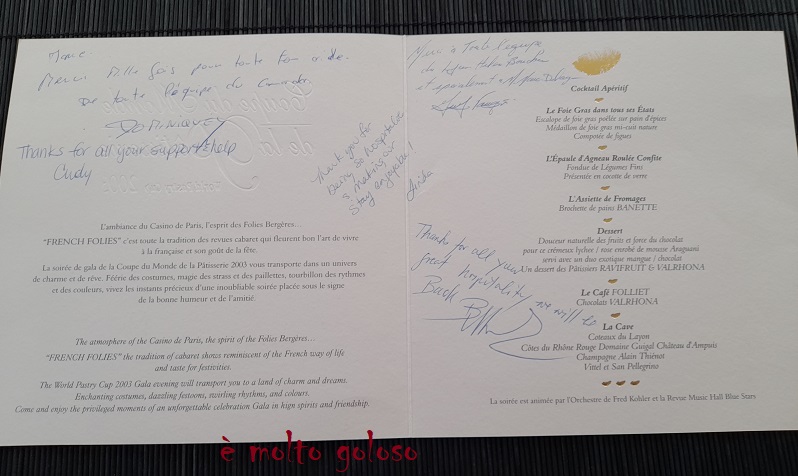 Merci Mille fois pour toute ton aide.
De toute l'équipe du
Thanks for all your support & help
Cudy
Thank you for
being so hospitable
& making our
stay enjoyable!
L'ambiance du Casino de Paris, l'esprit des Folies Bergères…
"FRENCH FOLIES" c'est toute la tradition des revues cabaret qui fleurent bon l'art de vivre
à la française et son goût de la fête.
La soirée de gala de la Coupe du Monde de la Pâtisserie 2003 vous transporte dans un univers
de charme et de rêve. Féérie des costumes, magie des strass et des paillettes, tourbillon des rythmes
et des couleurs, vivez les instants précieux d'une inoubliable soirée placée sous le signe
de la bonne humeur et de l'amitié.
The atmosphere of the Casino de Paris, the spirit of the Folies Bergères…
"FRENCH FOLIES" the tradition of cabaret shows reminiscent of the French way of life
and taste for festivities.
The World Pastry Cup 2003 Gala evening will transport you to a land of charm and dreams.
Enchanting costumes, dazzling festoons, swirling rhythms, and colours.
Come and enjoy the privileged moments of an unforgettable celebration Gala in high spirits and friendship.
Merci à Toute l'équipe
du Lycée
et spécialement
Cocktail Apéritif
Le Foie Gras dans tous ses États
Escalope de foie gras poêlée sur pain d'épices
Médaillon de foie gras mi-cuit nature
Composée de figues
L'Épaule d'Agneau Roulée Confite
Fondue de Légumes Fins
Présentée en cocotte de verre
L'Assiette de Fromages
Brochette de pains BANETTE
Dessert
Douceur naturelle des fruits et force du chocolat
pour ce crémeux lychee / rose enrobé de mousse Araguani
servi avec un duo exotique mangue / chocolat
Un dessert des Pâtissiers RAVIFRUIT & VALRHONA
Thanks for all your
great hospitality we will be
Back
Le Café FOLLIET
Chocolats VALRHONA
La Cave
Coteaux du Layon
Côtes du Rhône Rouge Domaine Guigal Château d'Ampuis
Champagne Alain Thiénot
Vittel et San Pellegrino
La soirée est animée par l'Orchestre de Fred Kohler et la Revue Music Hall Blue Stars
è molto goloso